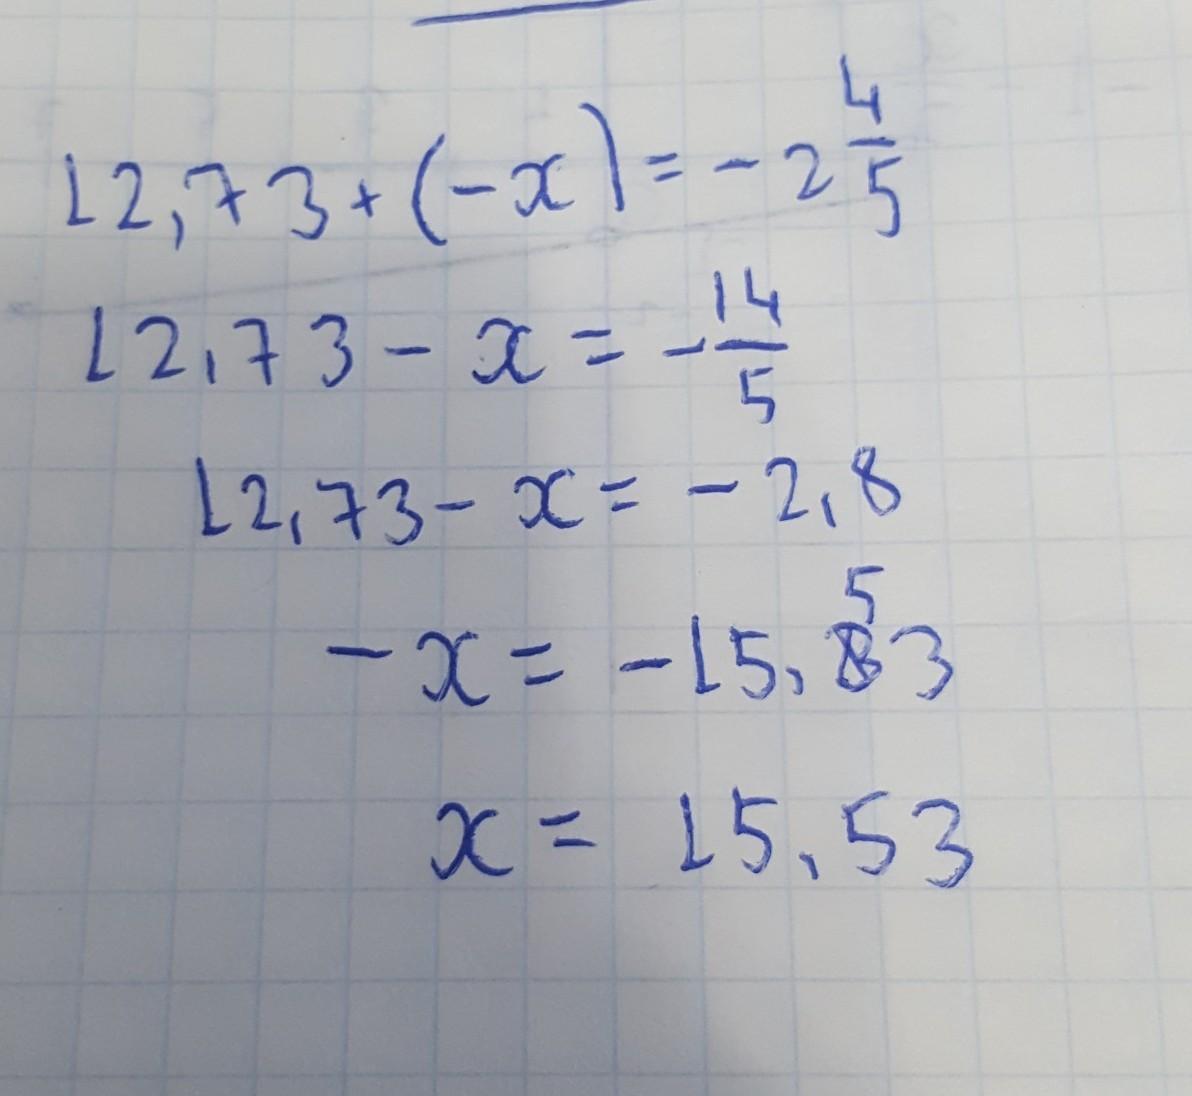 12,73 + (-x) = -2 4/5
12,73 - x = -14/5
12,73 - x = -2,8
-x = -15,53
x = 15,53